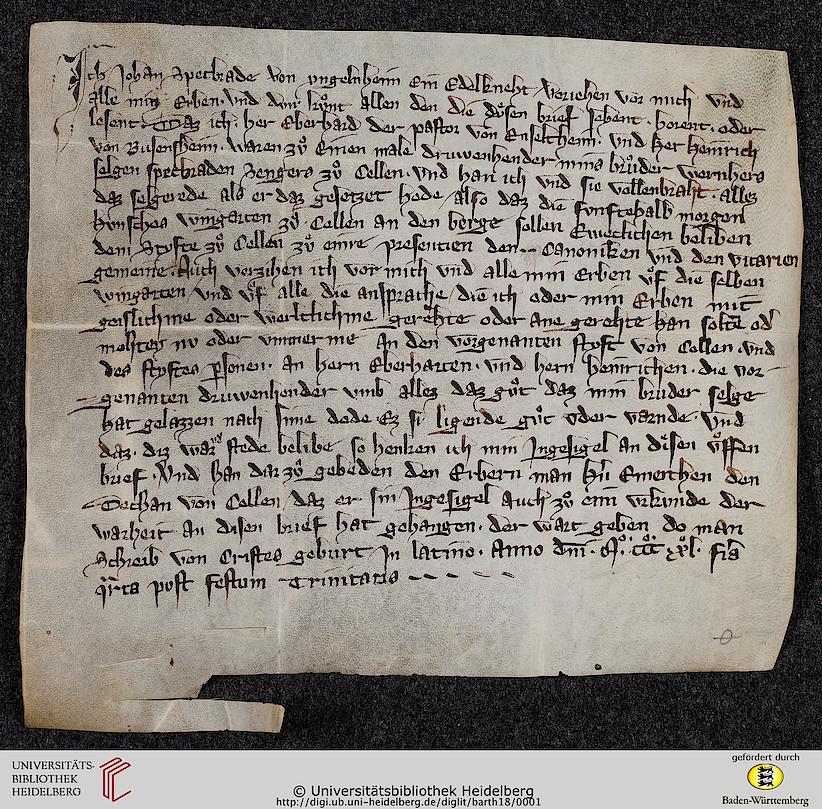 Ich Johan Spechzade von yngelnheim Ein Edelkneht verzehen vor mich vnd
alle min Erben vnd dun kuͦnt allen den die disen brief sehent. horent. oder
lesent Daz ich. her Eberhard der pastor von Enseltheim. vnd her heinrich
von Busensheim. waren zuͦ Einen male druwenhender mins bruͦder wernhers
selgen spechzaden sengers zuͦ Cellen. vnd han ich vnd sie vollenbraht. allez
daz selgerede als er daz gesetzet hede. also daz die funftehalb morgen
hunsches wingarten zuͦ Cellen an den berge sollen Eweclichen beliben
dem Styfte zuͦ Cellen zuͦ einre presentien den Canoniken vnd den vitarien
gemeine. Auch verzihen ich vor mich vnd alle min Erben vͦf die selben
wingarten vnd vͦf alle die ansprache die ich oder min Erben mit
geislichme oder werltlichme gerehte oder ane gerehte han solte od'
mohten nv oder vmmerme an den vorgenanten styft von Cellen. vnd
des styftes psonen. an hern Eberharten. vnd hern heinrichen. die vor
genanten druwenhender vmb allez daz guͦt daz min bruder selge
hat gelazzen nach sime dode. Ez si ligende guͦt oder varnde. vnd
daz. diz war stede belibe so henken ich min Ingesigel an disen vͦffen
brief. vnd han dar zuͦ gebeden den Erbern man hn Emerchen den
Dechan von Cellen daz er sin Ingesigel auch zuͦ eim vrkunde der
warheit an disen brief hat gehangen. der wart geben do man
schreib von Cristes geburt In latino. Anno dni. Mͦ. CCCͦ xlͦ. fia
qrta post festum Trinitatis
UNIVERSITÄTS-
BIBLIOTHEK
HEIDELBERG
© Universitätsbibliothek Heidelberg
http://digi.ub.uni-heidelberg.de/diglit/barth18/0001
gefördert durch
Baden-Württemberg